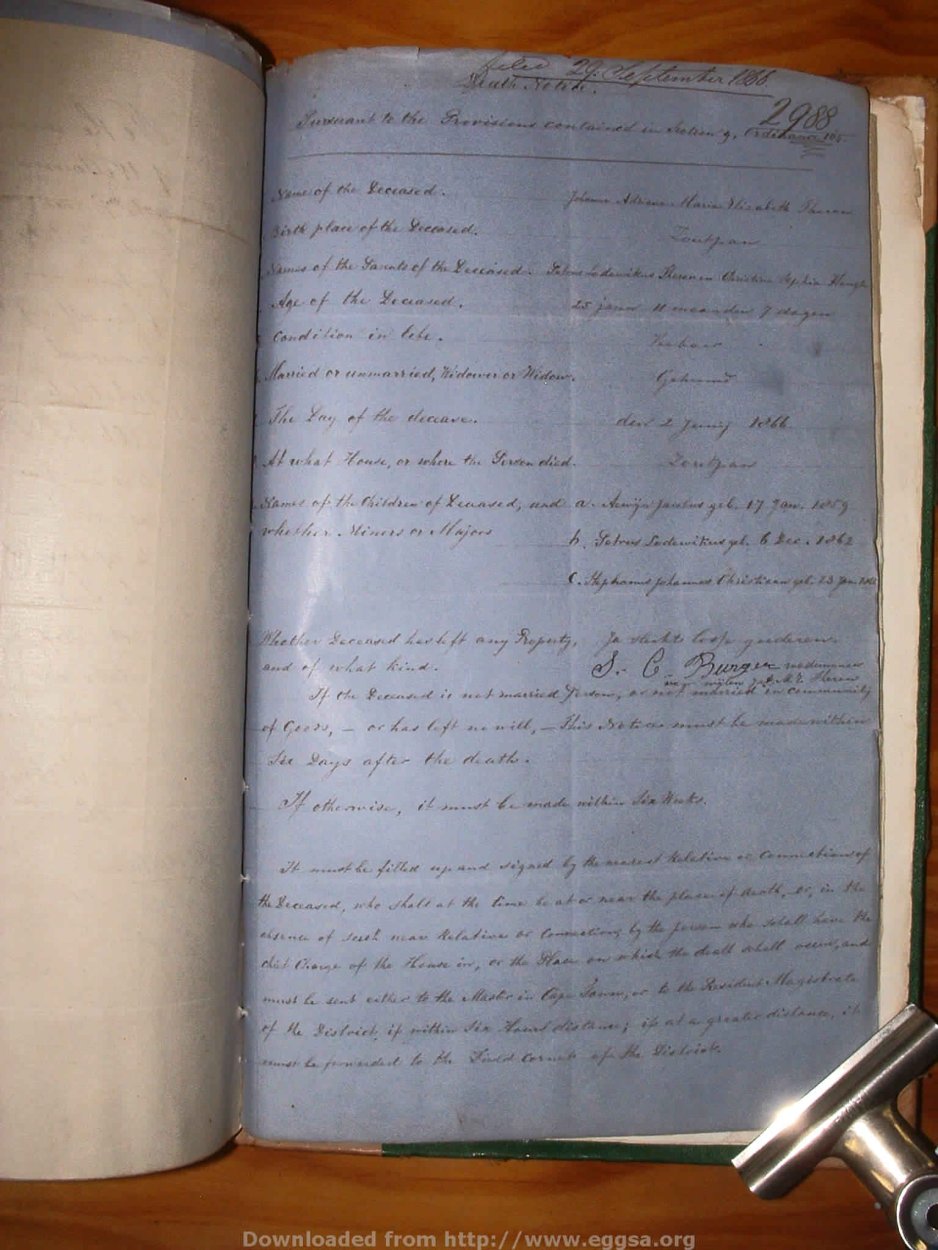 filed 29 September 1866
Death Notice.
2988
Pursuant to the Provisions contained in Section 9, Ordinance 104.
Name of the Deceased. Johanna Adriana Maria Elizabeth Theron
Birth place of the Deceased. Zoutpan
Names of the Parents of the Deceased. Petrus Lodewikus Theron en Christina Sophia
Age of the Deceased. 25 jaren 11 maanden 7 dagen
Condition in life.
Married or unmarried, Widower or Widow. Gehuwd
The Day of the decease. den 2 Junij 1866
At what House, or where the Person died. Zoutpan
Names of the Children of Deceased, and a. Jacobus geb. 17 Jan. 1859
whether Minors or Majors
b. Petrus Lodewikus geb. 6 Dec. 1862
c. Stephanus Johannes Christiaan geb. 23 Jan.
Whether Deceased has left any Property, Ja slechts losse goederen
and of what kind. S. C. Burger
J.A.M.E. Theron
If the Deceased is not married Person, or not married in community
of Goods, — or has left no will, — This Notice must be made within
Six Days after the death.
If otherwise, it must be made within Six Weeks.
It must be filled up and signed by the nearest Relative or Connections of
the Deceased, who shall at the time be at or near the place of death, or, in the
absence of such near Relative or Connection, by the person who shall have the
chief Charge of the House in, or the Place on which the death shall occur, and
must be sent either to the Master in Cape Town, or to the Resident Magistrate
of the District, if within Six Hours distance; if at a greater distance, it
must be forwarded to the Field Cornet of the District.
Downloaded from http://www.eggsa.org